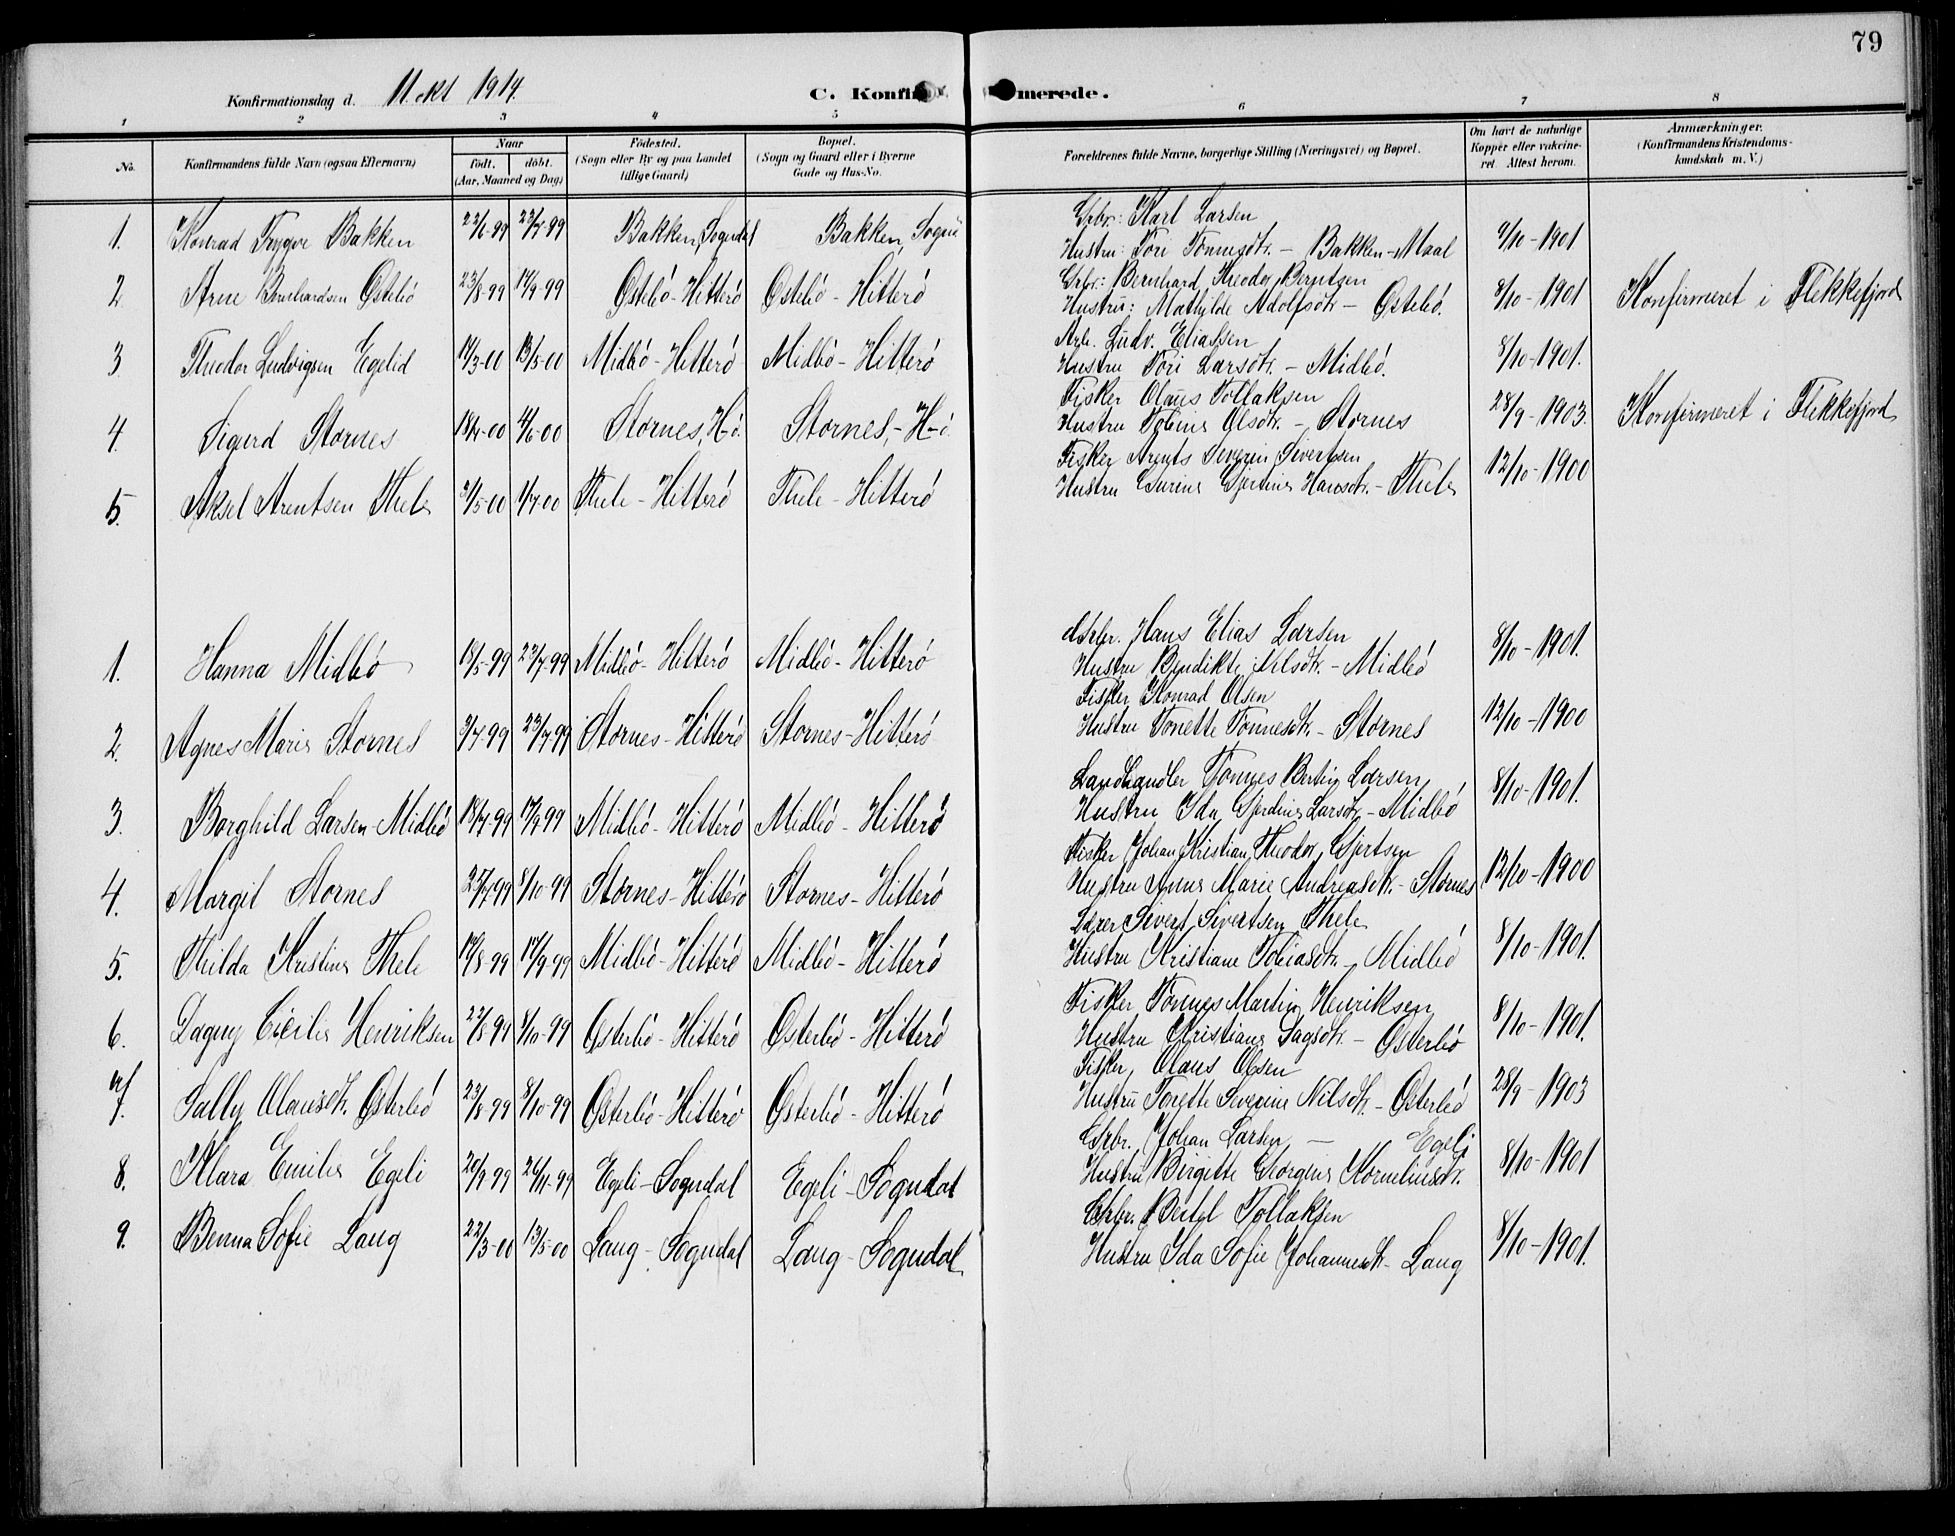 79
Konfirmationsdag d. 11. okt 1914.
C. Konfir merede.
1 2 3 4 5 6 7 8
No. Konfirmandens fulde Navn (ogsaa Efternavn) Naar födt. döbt. (Aar, Maaned og Dag) Födested. (Sogn eller By og paa Landet tillige Gaard) Bopæl. (Sogn og Gaard eller i Byerne Gade og Hus-No. Forældrenes fulde Navne, borgerlige Stilling (Næringsvei) og Bopæl. Om havt de naturlige Kopper eller vakcineret Attest herom. Anmærkninger. (Konfirmandens Kristendomskundskab m. V.)
1. Konrad Trygve Bakken 22/6-99 23/7-99 Bakken, Sogndal Bakken, Sogn Grbr: Karl Larsen
Hustru: Tori Tønnesdtr. - Bakken-Maal 9/10-1901
2 Arne Bernhardsen Østebö 23/8-99 14/9-99 Østebö-Hitterö Østebö-Hitterö Grbr: Bernhard Theodor Berntsen
Hustru: Mathilde Adolfsdtr - Østebö. 8/10-1901 Konfirmeret i Flekkefjord
3 Theodor Ludvigsen Egelid 14/3-00 13/5-00 Midbö-Hitterö Midbö-Hitterö Arb. Ludv. Eliassen
Hustru Tori Larsdtr. - Midbö. 8/10-1901.
4. Sigurd Stornes 18/4-00 4/6-00 Stornes, H-ö. Stornes,-H-ö. Fisker Olaus Tollaksen
Hustru Tobine Olsdtr. - Stornes 28/9-1903. Konfirmeret i Flekkefjord
5. Aksel Arentsen Thele 2/5-00 1/7-00 Thele-Hitterö Thele-Hitterö Fisker Arents Severin Sivertsen
Hustru Gurine Gjertine Hansdtr.-Thele 12/10-1900
1. Hanna Midbö 18/5-99 23/7-99 Midbö-Hitterö Midbö-Hitterö Grbr. Hans Elias Larsen
Hustru Bendikte Nilsdtr.-Midbö 8/10-1901.
2. Agnes Marie Stornes 3/7-99 23/7-99 Stornes-Hitterö Stornes-Hitterö Fisker Konrad Olsen
Hustru Tonette Tønnesdtr.-Stornes 12/10-1900
3. Borghild Larsen-Midbö 18/7-99 17/9-99 Midbö-Hitterö Midbö-Hitterö Landhandler Tønnes Bertin Larsen
Hustru Ida Gjerdine Larsdtr.-Midbö 8/10-1901.
4. Margit Stornes 27/7-99 8/10-99 Stornes-Hitterö Stornes-Hitterö Fisker Johan Kristian Theodor Gjertsen
Hustru Anne Marie Andreasdtr.-Stornes 12/10-1900
5. Thilda Kristine Thele 19/8-99 17/9-99 Midbö-Hitterö Midbö-Hitterö Lærer Sivert Sivertsen Thele
Hustru Kristiane Tobiasdtr.-Midbö 8/10-1901.
6. Dagny Cicilie Henriksen 22/8-99 8/10-99 Østerbö-Hitterö Østerbö-Hitterö Fisker Tønnes Martin Henriksen
Hustru Kristiane Sagsdtr.-Østerbö 8/10-1901.
7. Sally Olausdtr. Østerbö 23/8-99 8/10-99 Østerbö-Hitterö Østerbö-Hitterö Fisker Olaus Olsen
Hustru Tonette Severine Nilsdtr.-Østerbö 28/9-1903
8. Klara Emilie Egeli 20/9-99 26/11-99 Egeli-Sogndal Egeli-Sogndal Grbr. Johan Larsen - Egeli
Hustru Birgitte Georgine Korneliusdtr. 8/10-1901
9. Benna Sofie Laug 22/3-00 13/5-00 Laug-Sogndal Laug-Sogndal Grbr. Bertel Tollaksen
Hustru Ida Sofie Johannesdtr-Laug 8/10-1901.